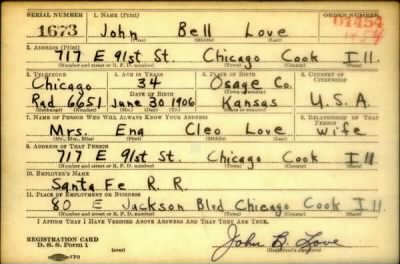 SERIAL NUMBER 1. NAME (Print) ORDER NUMBER
1673 John Bell Love
(First) (Middle) (Last)
2. ADDRESS (Print)
717 E 91st St. Chicago Cook Ill.
(Number and street or R. F. D. number) (Town) (County) (State)
3. TELEPHONE 4. AGE IN YEARS 5. PLACE OF BIRTH 6. COUNTRY OF CITIZENSHIP
Chicago 34 Osage Co.
DATE OF BIRTH
Rad 6651 June 30 1906 Kansas U.S.A.
(Exchange) (Number) (Mo.) (Day) (Yr.) (State or country)
7. NAME OF PERSON WHO WILL ALWAYS KNOW YOUR ADDRESS 8. RELATIONSHIP OF THAT PERSON
Mrs. Ena Cleo Love Wife
(Mr., Mrs., Miss) (First) (Middle) (Last)
9. ADDRESS OF THAT PERSON
717 E 91st St. Chicago Cook Ill
(Number and street or R. F. D. number) (Town) (County) (State)
10. EMPLOYER'S NAME
Santa Fe R. R.
11. PLACE OF EMPLOYMENT OR BUSINESS
80 E Jackson Blvd Chicago Cook Ill.
(Number and street or R. F. D. number) (Town) (County) (State)
I AFFIRM THAT I HAVE VERIFIED ABOVE ANSWERS AND THAT THEY ARE TRUE.
REGISTRATION CARD
D. S. S. Form 1 (over) John B. Love
(Registrant's signature)